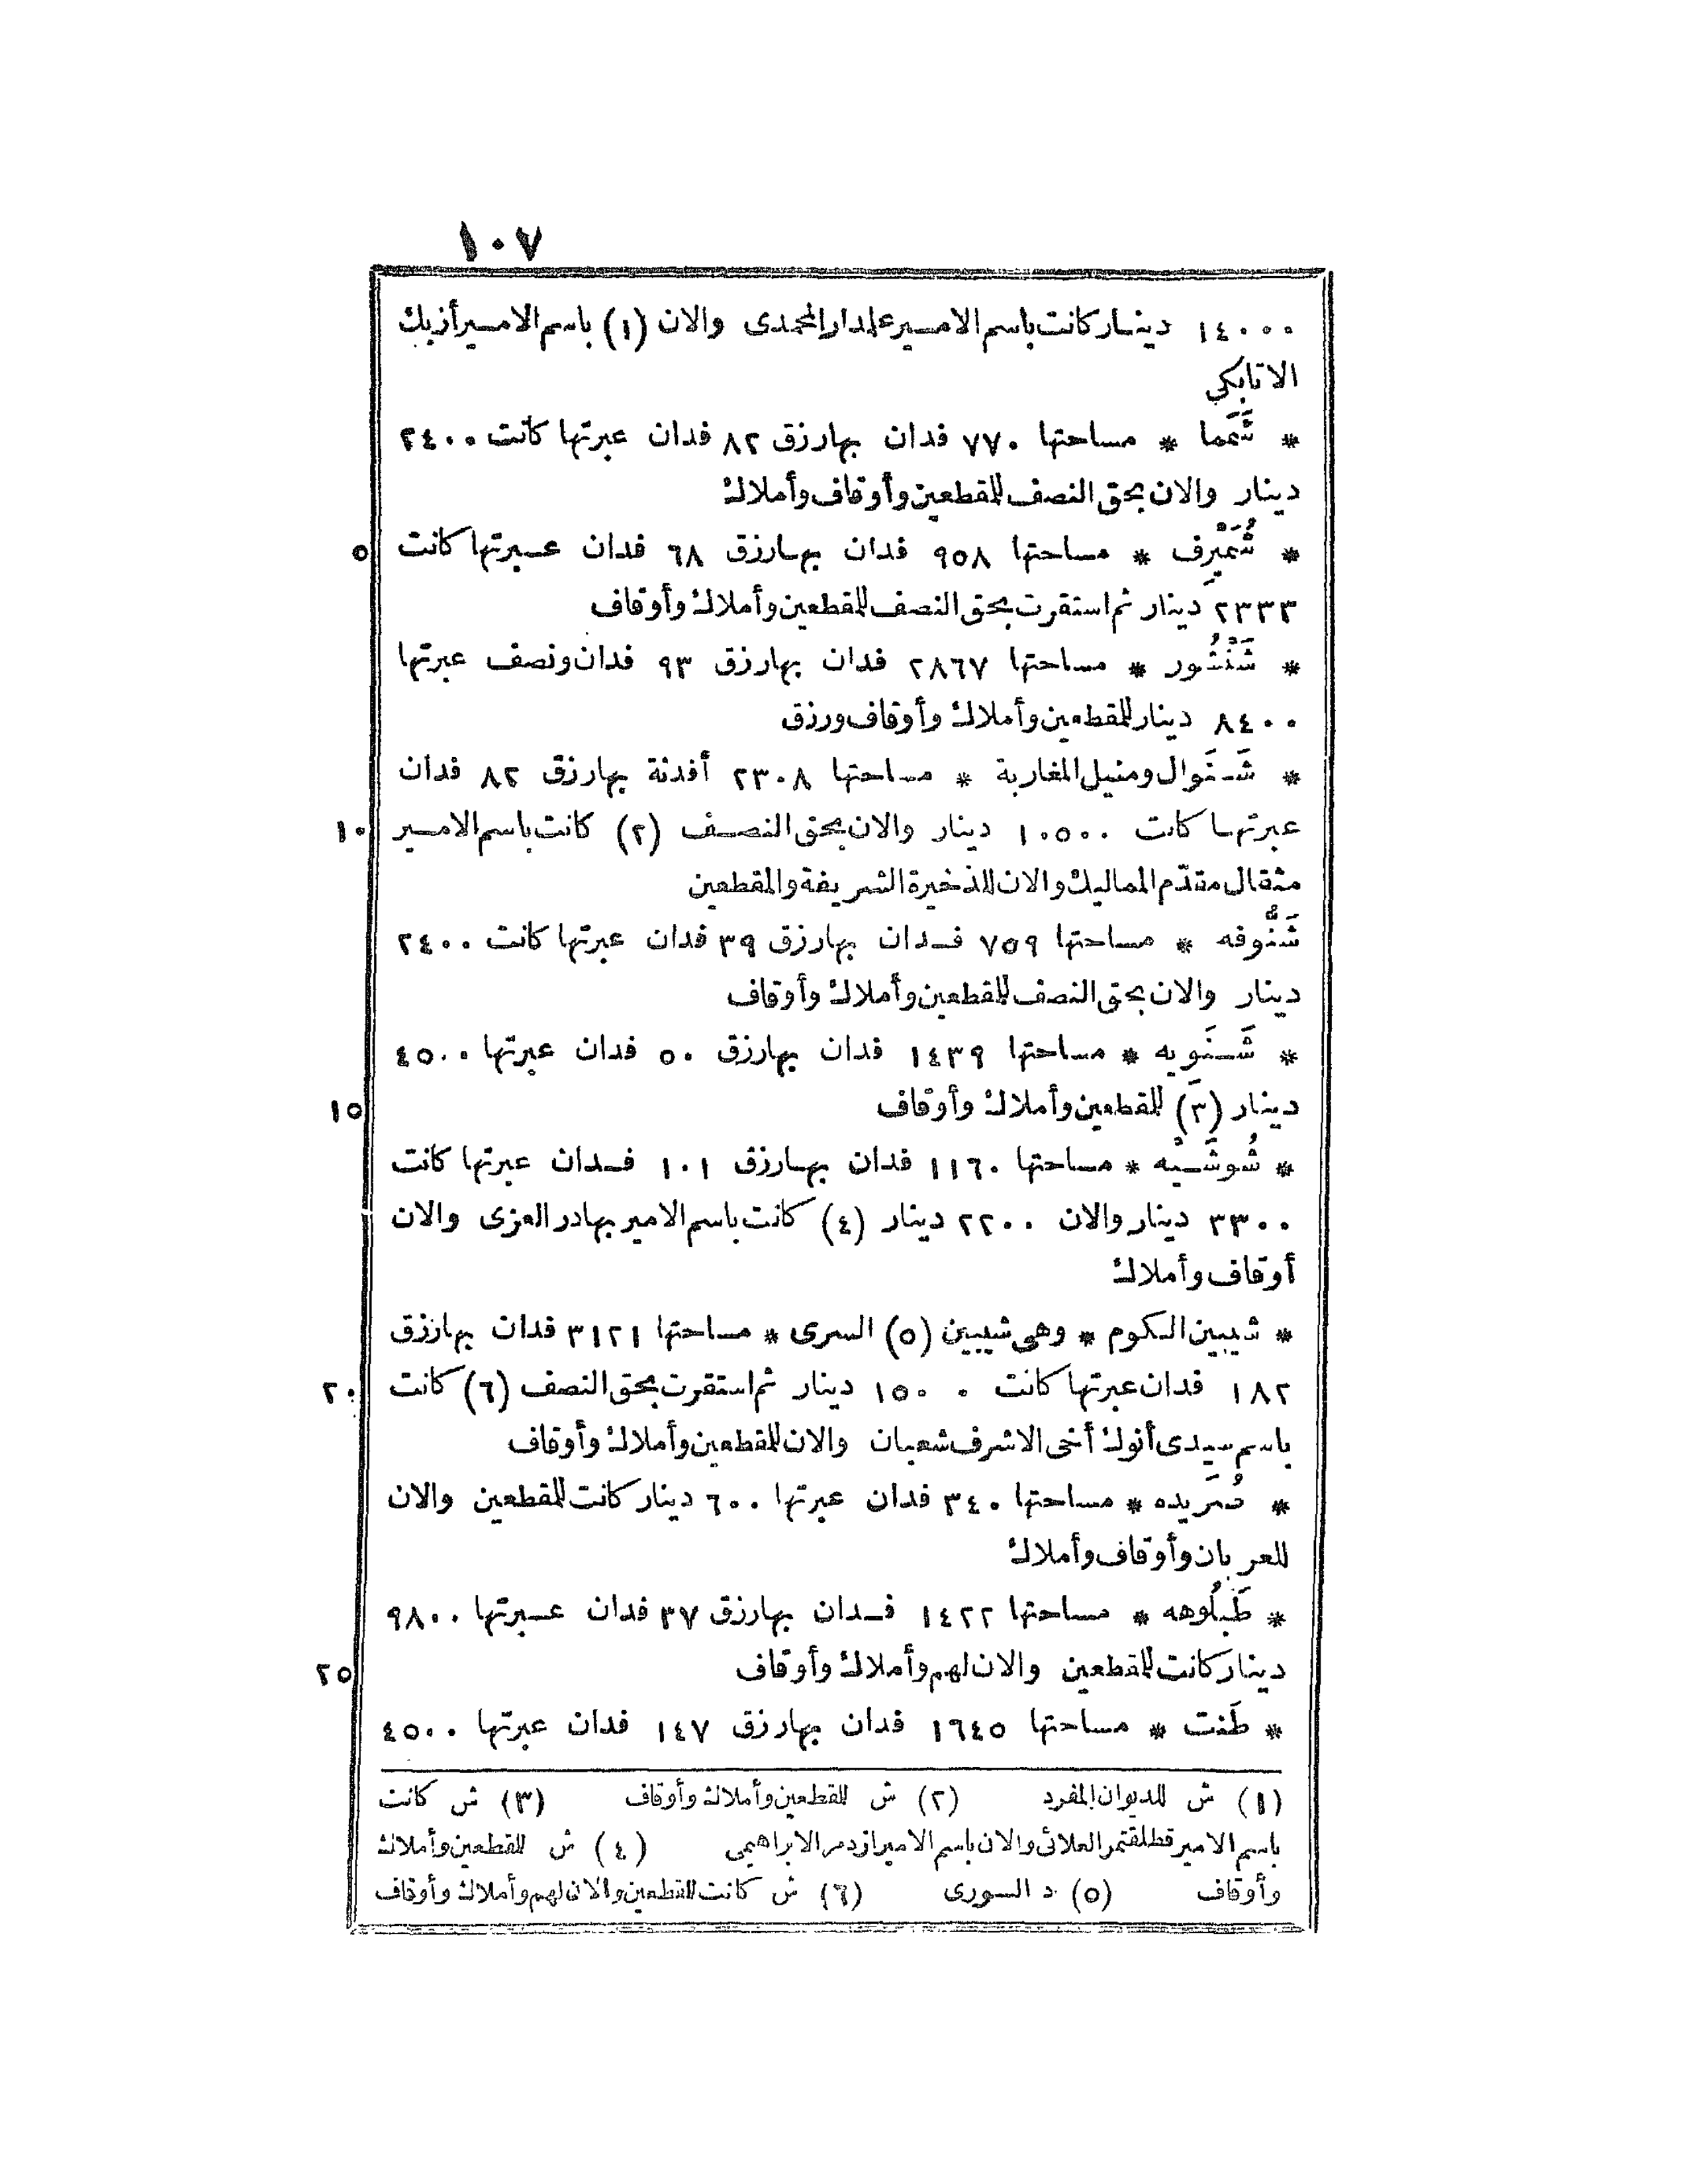 ١٠٧
١٤٠٠٠ دينار كانت باسم الامير علمدار المحمدى والان (١) باسم الامير أزبك
الاتابكي
* شَمَّا * مساحتها ٧٧٠ فدان بها رزق ٨٢ فدان عبرتها كانت ٢٤٠٠
دينار والان بحق النصف للمقطعين وأوقاف وأملاك
* شُمَيْرف * مساحتها ٩٥٨ فدان بها رزق ٦٨ فدان عبرتها كانت ٥
٢٣٣٣ دينار ثم استقرت بحق النصف للمقطعين وأملاك وأوقاف
* شَنْشُور * مساحتها ٢٨٦٧ فدان بها رزق ٩٣ فدان ونصف عبرتها
٨٤٠٠ دينار للمقطعين وأملاك وأوقاف ورزق
* شَنَوال ومنيل المغاربة * مساحتها ٢٣٠٨ أفدنة بها رزق ٨٢ فدان
عبرتها كانت ١٠٥٠٠ دينار والان بحق النصف (٢) كانت باسم الامير ١٠
مثقال مقدّم المماليك والان للذخيرة الشريفة والمقطعين
شَنُّوفه * مساحتها ٧٥٩ فدان بها رزق ٣٩ فدان عبرتها كانت ٢٤٠٠
دينار والان بحق النصف للمقطعين وأملاك وأوقاف
* شَنَويه * مساحتها ١٤٣٩ فدان بها رزق ٥٠ فدان عبرتها ٤٥٠٠
دينار (٣) للمقطعين وأملاك وأوقاف ١٥
* شُوشَيْه * مساحتها ١١٦٠ فدان بها رزق ١٠١ فدان عبرتها كانت
٣٣٠٠ دينار والان ٢٢٠٠ دينار (٤) كانت باسم الامير بهادر العزى والان
أوقاف وأملاك
* شيبين الكوم * وهى شيبين (٥) السرى * مساحتها ٣١٢١ فدان بها رزق
١٨٢ فدان عبرتها كانت ١٥٠٠٠ دينار ثم استقرت بحق النصف (٦) كانت ٢٠
باسم سيدى أنوك أخى الاشرف شعبان والان للمقطعين وأملاك وأوقاف
* صُمَرَيده * مساحتها ٣٤٠ فدان عبرتها ٦٠٠ دينار كانت للمقطعين والان
للعربان وأوقاف وأملاك
* طَبْلُوهه * مساحتها ١٤٢٢ فدان بها رزق ٣٧ فدان عبرتها ٩٨٠٠
دينار كانت للمقطعين والان لهم وأملاك وأوقاف ٢٥
* طَنت * مساحتها ١٦٤٥ فدان بها رزق ١٤٧ فدان عبرتها ٤٥٠٠
(١) ش للديوان المفرد (٢) ش للمقطعين وأملاك وأوقاف (٣) ش كانت
باسم الامير قطلقتمر العلائى والان باسم الامير ازدمر الابراهيمى (٤) ش للمقطعين وأملاك
وأوقاف (٥) د السورى (٦) ش كانت للمقطعين والان لهم وأملاك وأوقاف